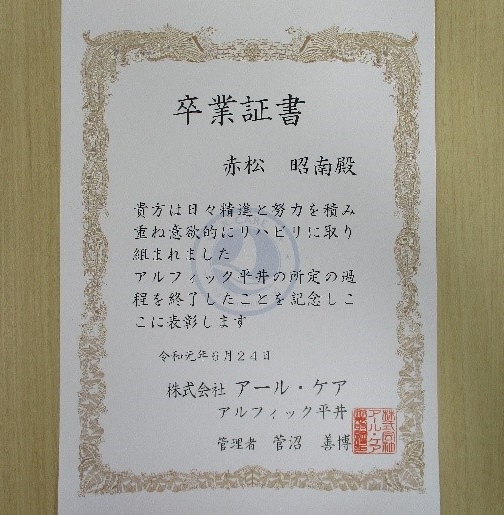 卒業証書
赤松 昭南殿
貴方は日々精進と努力を積み
重ね意欲的にリハビリに取り
組まれました
アルフィック平井の所定の過
程を終了したことを記念しこ
こに表彰します
令和元年6月24日
株式会社 アール・ケア
アルフィック平井
管理者 菅沼 善博
株式会社
アール・ケア